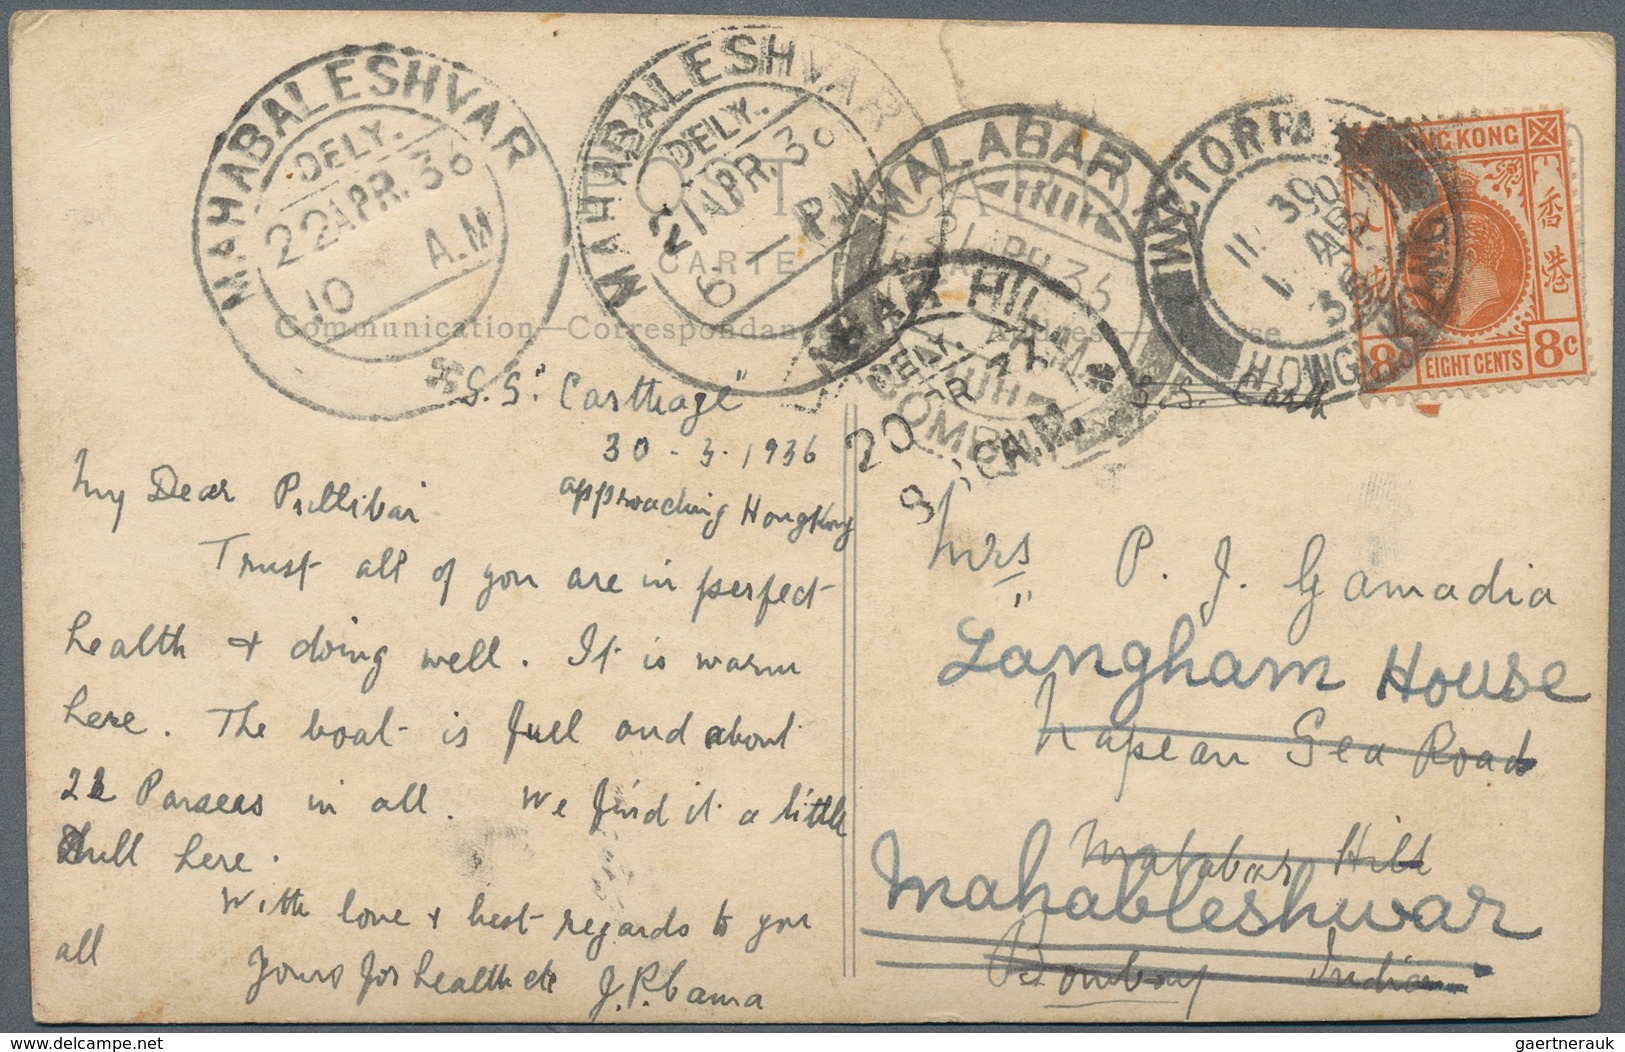 MAHABALESHVAR
DELY.
22 APR. 36
10 A.M
MAHABALESHVAR
DELY.
21 APR. 36
6 P.M
MALABAR
21 APR 36
BOMBAY
HILL
DELY.
20
8
A.M.
VICTORIA
HONG KONG
HONG KONG
香港
8c EIGHT CENTS 8c
POST CARD
CARTE
Communication—Correspondance
S.S. "Carthage"
S.S. Carth
30-3-1936
approaching HongKong
My Dear Pillibai
Trust all of you are in perfect
health & doing well. It is warm
here. The boat is full and about
22 Parsees in all. We find it a little
dull here.
With love & best regards to you
all
Yours for health etc J.P. Cama
Mrs P. J. Gamadia
"Langham House
Napean Sea Road
Malabar Hill
Mahableshwar
Bombay India
gaertnerauk
www.delcampe.net